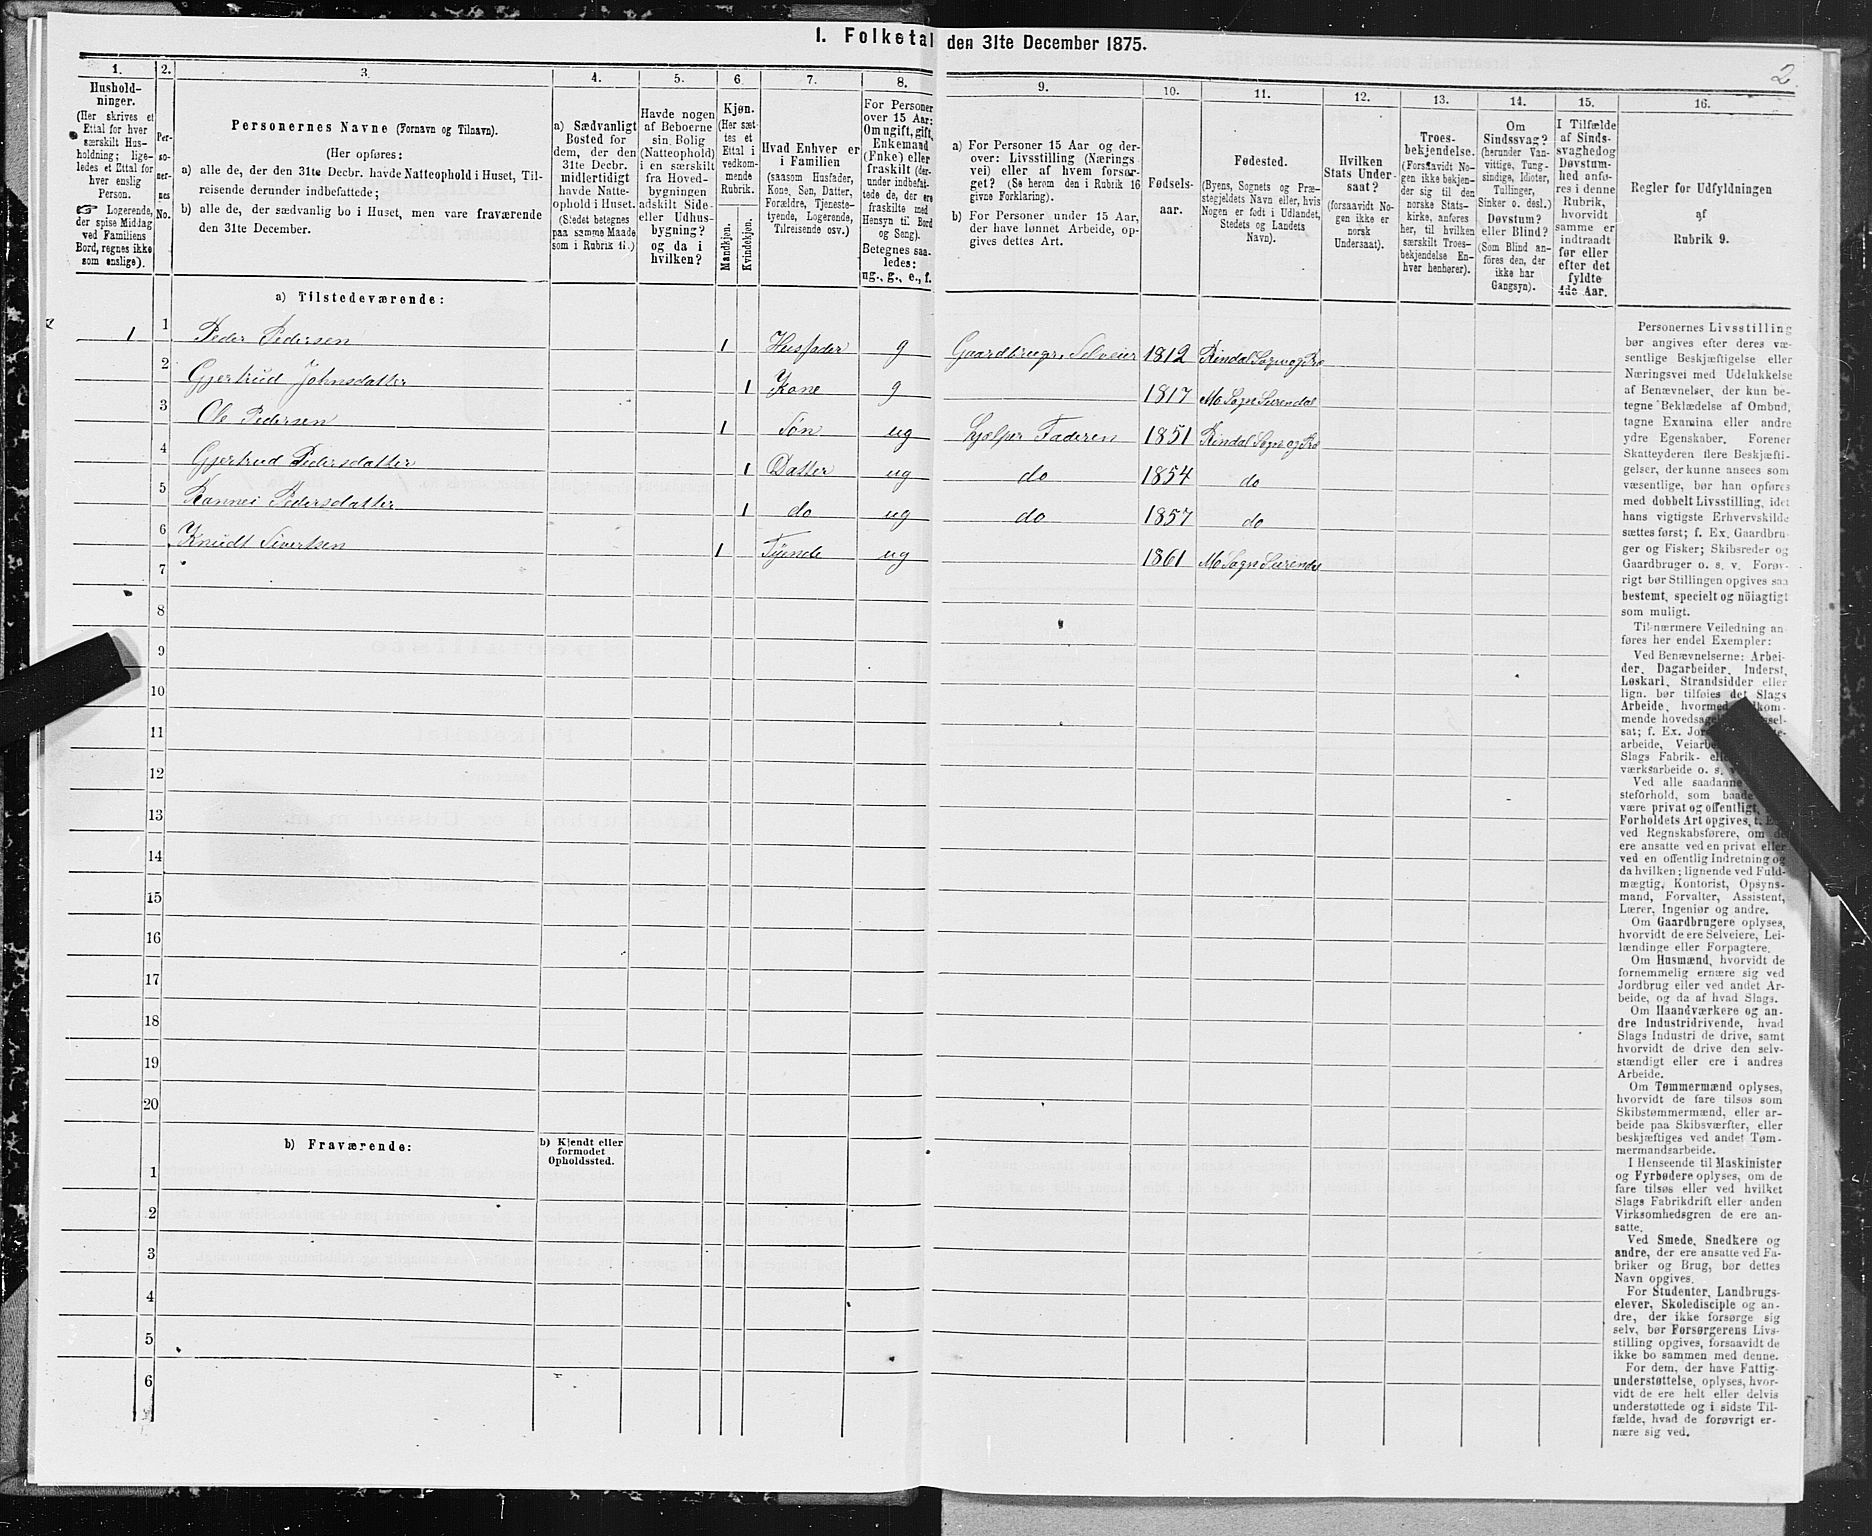 I. Folketal den 31te December 1875.
2
1.
Hushold-
ninger.
(Her skrives et
Ettal for hver
særskilt Hus-
holdning; lige-
ledes et Ettal for
hver enslig
Person.
☞ Logerende,
der spise Middag
ved Familiens
Bord, regnes ikke
som enslige).
2.
Per-
so-
ner-
nes
No.
3.
Personernes Navne (Fornavn og Tilnavn).
(Her opføres:
a) alle de, der den 31te Decbr. havde Natteophold i Huset, Til-
reisende derunder indbefattede;
b) alle de, der sædvanlig bo i Huset, men vare fraværende
den 31te December.
4.
a) Sædvanligt
Bosted for
dem, der den
31te Decbr.
midlertidigt
havde Natte-
ophold i Huset.
(Stedet betegnes
paa samme Maade
som i Rubrik 11.)
5.
Havde nogen
af Beboerne
sin Bolig
(Natteophold)
i en særskilt
fra Hoved-
bygningen
adskilt Side-
eller Udhus-
bygning?
og da i
hvilken?
6.
Kjøn.
(Her sæt-
tes et
Ettal i
vedkom-
mende
Rubrik.
Mandkjøn.
Kvindekjøn.
7.
Hvad Enhver er
i Familien
(saasom Husfader,
Kone, Søn, Datter,
Forældre, Tjeneste-
tyende, Logerende,
Tilreisende osv.)
8.
For Personer
over 15 Aar:
Om ugift, gift,
Enkemand
(Enke) eller
fraskilt (der-
under indbefat-
tede de, der ere
fraskilte med
Hensyn til Bord
og Seng).
Betegnes saa-
ledes:
ug., g., e., f.
9.
a) For Personer 15 Aar og der-
over: Livsstilling (Nærings-
vei) eller af hvem forsør-
get? (Se herom den i Rubrik 16
givne Forklaring).
b) For Personer under 15 Aar,
der have lønnet Arbeide, op-
gives dettes Art.
10.
Fødsels-
aar.
11.
Fødested.
(Byens, Sognets og Præ-
stegjeldets Navn eller, hvis
Nogen er født i Udlandet,
Stedets og Landets
Navn).
12.
Hvilken
Stats Under-
saat?
(forsaavidt No-
gen ikke er
norsk
Undersaat).
13.
Troes-
bekjendelse.
(Forsaavidt No-
gen ikke bekjen-
der sig til den
norske Stats-
kirke, anføres
her, til hvilken
særskilt Troes-
bekjendelse En-
hver henhører).
14.
Om
Sindssvag?
(herunder Van-
vittige, Tung-
sindige, Idioter,
Tullinger,
Sinker o. desl.)
Døvstum?
eller Blind?
(Som Blind an-
føres den, der
ikke har
Gangsyn).
15.
I Tilfælde
af Sinds-
svaghed og
Døvstum-
hed anfø-
res i denne
Rubrik,
hvorvidt
samme er
indtraadt
før eller
efter det
fyldte
4de Aar.
16.
Regler for Udfyldningen
af
Rubrik 9.
a) Tilstedeværende:
1 1 Peder Pedersen 1 Husfader g Gaardbruger Selveier 1812 Rindal Sogn og Præ
2 Gjertrud Johnsdatter 1 Kone g 1817 Mo Sogn Surendal
3 Ole Pedersen 1 Søn ug hjelper Faderen 1851 Rindal Sogn og Præ
4 Gjertrud Pedersdatter 1 Datter ug do 1854 do
5 Rannei Pedersdatter 1 do ug do 1857 do
6 Knudt Sivertsen 1 Tjende ug 1861 Mo Sogn Surendal
7
8
9
10
11
12
13
14
15
16
17
18
19
20
b) Fraværende:
b) Kjendt eller
formodet
Opholdssted.
1
2
3
4
5
6
Personernes Livsstilling
bør angives efter deres væ-
sentlige Beskjæftigelse eller
Næringsvei med Udelukkelse
af Benævnelser, der kun be-
tegne Beklædelse af Ombud,
tagne Examina eller andre
ydre Egenskaber. Forener
Skatteyderen flere Beskjæfti-
gelser, der kunne ansees som
væsentlige, bør han opføres
med dobbelt Livsstilling, idet
hans vigtigste Erhvervskilde
sættes først; f. Ex. Gaardbru-
ger og Fisker; Skibsreder og
Gaardbruger o. s. v. Forøv-
rigt bør Stillingen opgives saa
bestemt, specielt og nöiagtigt
som muligt.
Til nærmere Veiledning an-
føres her endel Exempler:
Ved Benævnelserne: Arbei-
der, Dagarbeider, Inderst,
Løskarl, Strandsidder eller
lign. bør tilføies det Slags
Arbeide, hvormed
mende
sat; f. Ex.
arbeide,
Slags Fabrik-
værksarbeide o. s.
Ved alle saadanne
steforhold, som baade
være privat og offentligt,
Forholdets Art opgives, t. Ex.
ved Regnskabsførere, om de
ere ansatte ved en privat eller
ved en offentlig Indretning og
da hvilken; lignende ved Fuld-
mægtig, Kontorist, Opsyns-
mand, Forvalter, Assistent,
Lærer, Ingeniør og andre.
Om Gaardbrugere oplyses,
hvorvidt de ere Selveiere, Lei-
lændinge eller Forpagtere.
Om Husmænd, hvorvidt de
fornemmelig ernære sig ved
Jordbrug eller ved andet Ar-
beide, og da af hvad Slags.
Om Haandværkere og an-
dre Industridrivende, hvad
Slags Industri de drive, samt
hvorvidt de drive den selv-
stændigt eller ere i andres
Arbeide.
Om Tømmermænd oplyses,
hvorvidt de fare tilsøs som
Skibstømmermænd, eller ar-
beide paa Skibsværfter, eller
beskjæftiges ved andet Tøm-
mermandsarbeide.
I Henseende til Maskinister
og Fyrbødere oplyses, om de
fare tilsøs eller ved hvilket
Slags Fabrikdrift eller anden
Virksomhedsgren de ere an-
satte.
Ved Smede, Snedkere og
andre, der ere ansatte ved Fa-
briker og Brug, bør dettes
Navn opgives.
For Studenter, Landbrugs-
elever, Skoledisciple og an-
dre, der ikke forsørge sig
selv, bør Forsørgerens Livs-
stilling opgives, forsaavidt de
ikke bo sammen med denne.
For dem, der have Fattig-
understøttelse, oplyses, hvor-
vidt de ere helt eller delvis
understøttede og i sidste Til-
fælde, hvad de forøvrigt er-
nære sig ved.